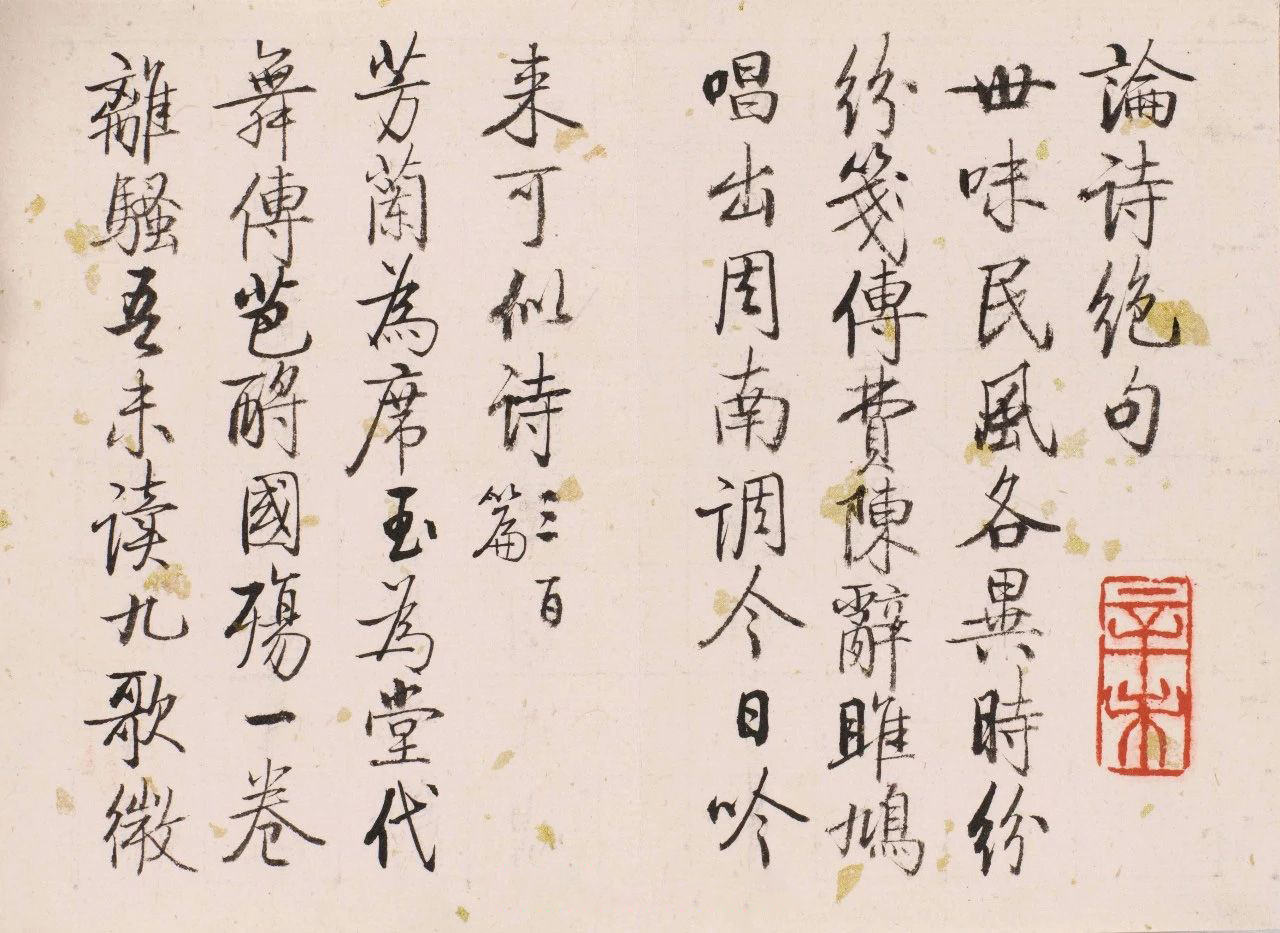 論诗絶句
辛未
世味民風各異時紛
紛箋傳費陳辭雎鳩
唱出周南调今日吟
来可似诗三百篇
芳蘭為席玉為堂代
舞傳芭酹國殤一卷
離騷吾未读九歌微